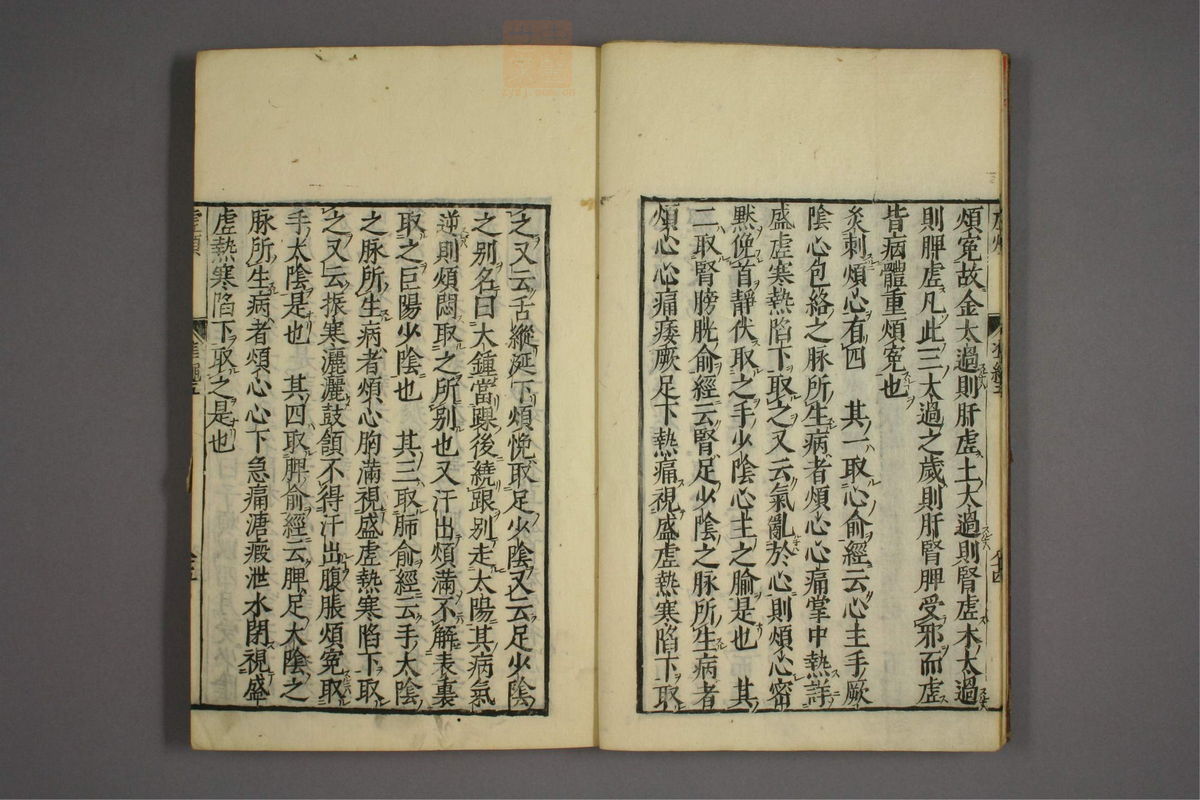 煩寃故金太過則肝虛土太過則腎虛木太過
則脾虛凡此三太過之歲則肝腎脾受邪而虛
皆病體重煩寃也
灸刺煩心有四　其一取心俞經云心主手厥
陰心包絡之脉所生病者煩心心痛掌中熱詳
盛虛寒熱陷下取之又云氣亂於心則煩心密
默俛首靜伏取之手少陰心主之腧是也　其
二取腎膀胱俞經云腎足少陰之脉所生病者
煩心心痛痿厥足下熱痛視盛虛熱寒陷下取
之又云舌縱涎下煩悗取足少陰又云足少陰
之别名曰大鍾當踝後繞跟别走太陽其病氣
逆則煩悶取之所别也又汗出煩滿不解表裏
取之巨陽少陰也　其三取肺俞經云手太陰
之脉所生病者煩心胸滿視盛虛熱寒陷下取
之又云振寒灑灑鼓頷不得汗出腹脹煩寃取
手太陰是也　其四取脾俞經云脾足太陰之
脉所生病者煩心心下急痛溏瘕泄水閉視盛
虛熱寒陷下取之是也
虛煩